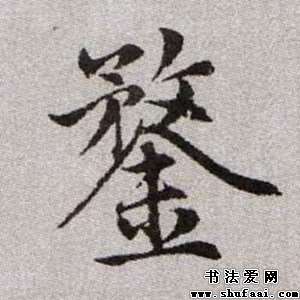 鍪
书法爱网
www.shufaai.com